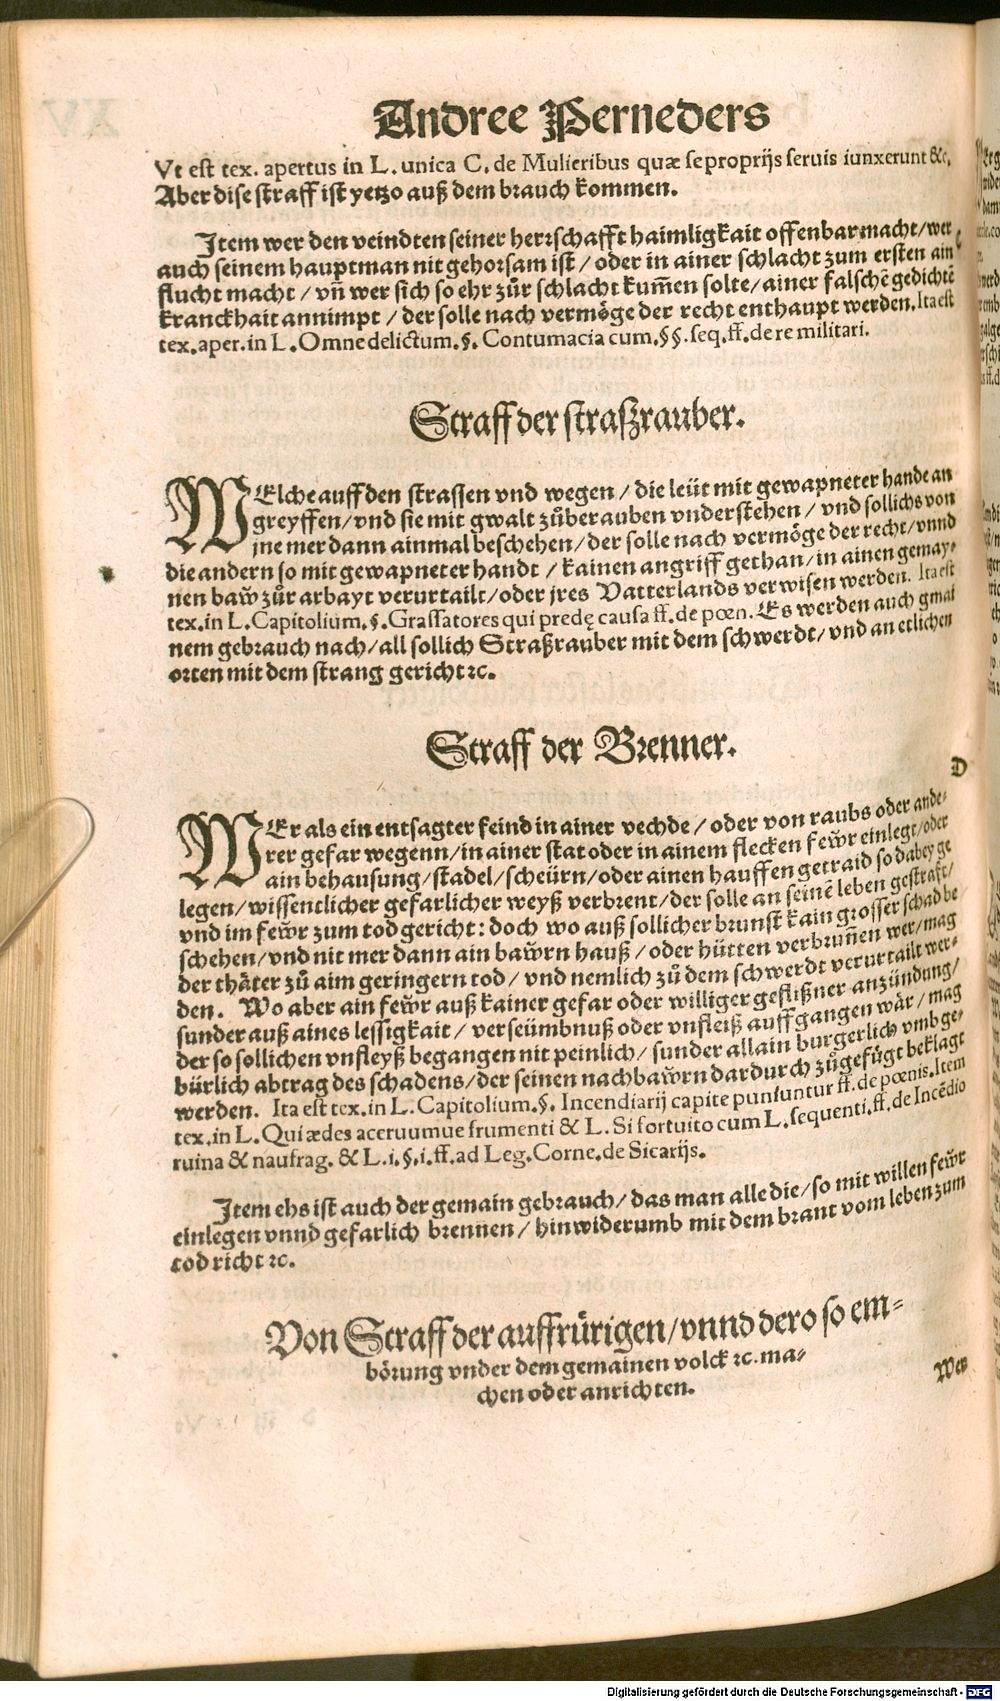 Andree Perneders
Vt est tex. apertus in L. unica C. de Mulieribus quæ se proprijs seruis iunxerunt &c.
Aber dise straff ist yetzo auß dem brauch kommen.
Item wer den veindten seiner herrschafft haimligkait offenbar macht/wer
auch seinem hauptman nit gehorsam ist / oder in ainer schlacht zum ersten ain
flucht macht / vñ wer sich so ehr zůr schlacht kum̃en solte/ainer falschẽ gedichtẽ
kranckhait annimpt / der solle nach vermöge der recht enthaupt werden. Ita est
tex.aper.in L. Omne delictum.§. Contumacia cum.§§.seq.ff.de re militari.
Straff der straßrauber.
WElche auff den strassen vnd wegen / die leüt mit gewapneter hande an
greyffen/vnd sie mit gwalt zůberauben vnderstehen / vnd sollichs von
jne mer dann ainmal beschehen/der solle nach vermöge der recht/vnnd
die andern so mit gewapneter handt / kainen angriff gethan/in ainen gemay-
nen baw̌ zůr arbayt verurtailt/oder jres Vatterlands verwisen werden. Ita est
tex.in L.Capitolium.§.Grassatores qui predę causa ff.de pœn. Es werden auch gmai
nem gebrauch nach/all sollich Straßrauber mit dem schwerdt/vnd an etlichen
orten mit dem strang gericht ꝛc.
Straff der Brenner.
D
WEr als ein entsagter feind in ainer vechde / oder von raubs oder ande-
rer gefar wegenn/in ainer stat oder in ainem flecken few̌r einlegt/oder
ain behausung/stadel/scheürn/oder ainen hauffen getraid so dabey ge
legen/wissentlicher gefarlicher weyß verbrent/der solle an seinẽ leben gestrafft/
vnd im few̌r zum tod gericht: doch wo auß sollicher brunst kain grosser schad be
schehen/vnd nit mer dann ain baw̌rn hauß / oder hütten verbrun̄en wer/mag
der thäter zů aim geringern tod / vnd nemlich zů dem schwerdt verurtailt wer-
den. Wo aber ain few̌r auß kainer gefar oder williger geflißner anzündung/
sunder auß aines lessigkait / verseümbnuß oder vnfleiß auffgangen wär / mag
der so sollichen vnfleyß begangen nit peinlich/ sunder allain burgerlich vmb ge-
bürlich abtrag des schadens/der seinen nachbaw̌rn dardurch zůgefügt beklagt
werden. Ita est tex.in L.Capitolium.§. Incendiarij capite puniuntur ff.de pœnis.Item
tex.in L.Qui ædes aceruumue frumenti & L. Si fortuito cum L.sequenti.ff.de Incẽdio
ruina & naufrag. & L.i.§.i.ff.ad Leg.Corne.de Sicarijs.
Item ehs ist auch der gemain gebrauch/ das man alle die/so mit willen few̌r
einlegen vnnd gefarlich brennen / hinwiderumb mit dem brant vom leben zum
tod richt ꝛc.
Von Straff der auffrürigen/vnnd dero so em-
börung vnder dem gemainen volck ꝛc. ma-
chen oder anrichten.
Wer
Digitalisierung gefördert durch die Deutsche Forschungsgemeinschaft - DFG